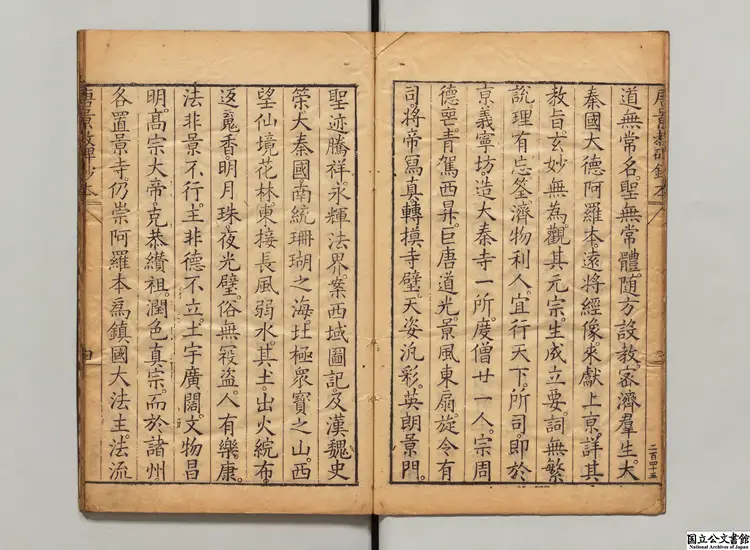 唐景教碑鈔本
二百四十五
道無常名。聖無常體。随方設教。密濟羣生。大
秦國大德阿羅本。遠將經像。來獻上京。詳其
教旨。玄妙無為。觀其元宗。生成立要。詞無繁
說。理有忘筌。濟物利人。宜行天下。所司即於
京義寧坊。造大秦寺一所。度僧廿一人。宗周
德喪。青駕西昇。巨唐道光。景風東扇。旋令有
司。將帝寫真。轉摸寺壁。天姿汎彩。英朗景門。
聖迹騰祥。永輝法界。案西域圖記。及漢魏史
策。大秦國南統珊瑚之海。北極眾寶之山。西
望仙境花林。東接長風弱水。其土。出火綄布。
返魂香。明月珠。夜光璧。俗無寇盜。人有樂康。
法非景不行。主非德不立。土宇廣闊。文物昌
明。高宗大帝。克恭纘祖。潤色真宗。而於諸州
各置景寺。仍崇阿羅本為鎮國大法主。法流
唐景教碑鈔本
国立公文書館
National Archives of Japan